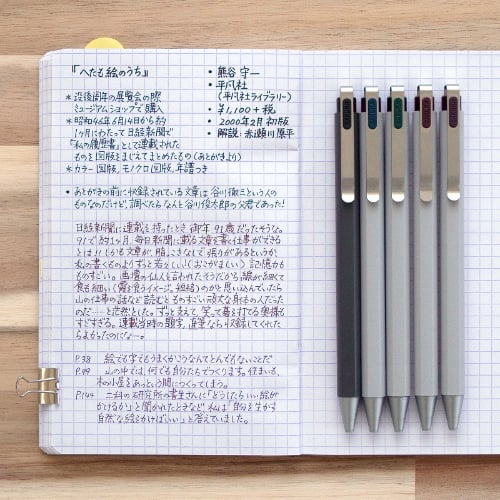 『へたも絵のうち』
＊没後周年の展覧会の際
ミュージアムショップで購入
＊昭和46年6月14日から約
1ヶ月にわたって日経新聞で
「私の履歴書」として連載された
ものを図版をまじえてまとめたもの(あとがきより)
＊カラー図版、モノクロ図版、年譜つき
・熊谷 守一
・平凡社
(平凡社ライブラリー)
・¥1,100+税
・2000年2月 初版
・解説：赤瀬川原平
・あとがきの前に収録されている文章は谷川徹三という人の
ものなのだけど、調べたらなんと谷川俊太郎の父君であった!
日経新聞に連載を持ったとき御年91歳だったそうな。
91で約1ヶ月、毎日新聞に載る文章を書く仕事ができる
とは!!しかも文章が、脂っこさなくて張りがあるというか、
私の書くものよりずっと若々しい(おこがましい)記憶力も
ものすごい。画壇の仙人と言われたそうだから線が細くて
食も細い(霞を食うイメージ。短絡)のかと思い込んでいたら
山の仕事の話など読むとものすごい頑丈な身体の人だった
のだ…と茫然とした。ずっと支えて、笑って碁を打てる奥様も
すごすぎる。連載当時の題字、直筆なら収録してくれたら
よかったのになー。
P.38 絵でも字でもうまくかこうなんてとんでもないことだ
P.99 山の中では、何でも自分たちでつくります。住まいも、
木の小屋をあっという間につくってしまう。
P.144 二科の研究所の書生さんに「どうしたらいい絵が
かけるか」と聞かれたときなど、私は「自分を生かす
自然な絵をかけばいい」と答えていました。